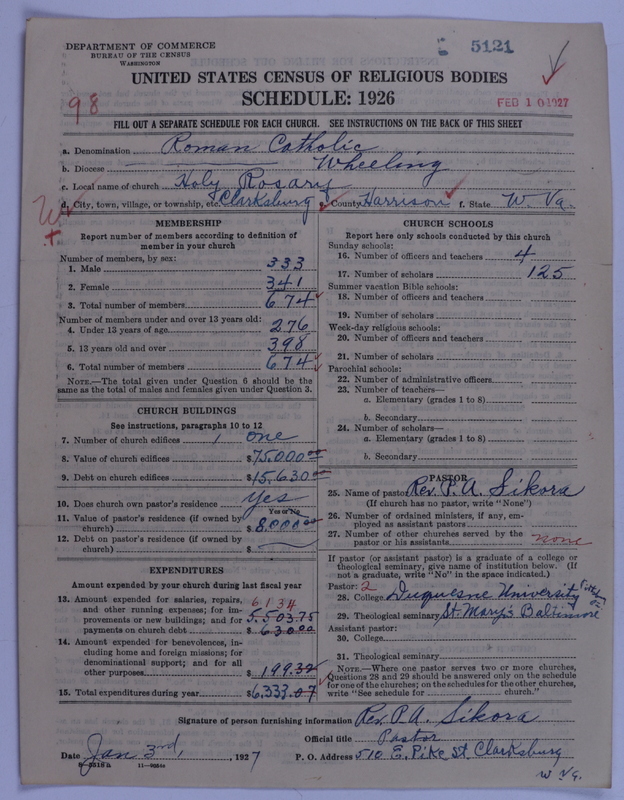 DEPARTMENT OF COMMERCE
BUREAU OF THE CENSUS
WASHINGTON
5121
UNITED STATES CENSUS OF RELIGIOUS BODIES
SCHEDULE: 1926
98
FEB 10 1927
FILL OUT A SEPARATE SCHEDULE FOR EACH CHURCH. SEE INSTRUCTIONS ON THE BACK OF THIS SHEET
a. Denomination Roman Catholic
b. Diocese Wheeling
c. Local name of church Holy Rosary
d. City, town, village, or township, etc. Clarksburg e. County Harrison f. State W. Va.
MEMBERSHIP
Report number of members according to definition of
member in your church
Number of members, by sex:
1. Male 333
2. Female 341
3. Total number of members 674
Number of members under and over 13 years old:
4. Under 13 years of age 276
5. 13 years old and over 398
6. Total number of members 674
NOTE.—The total given under Question 6 should be the
same as the total of males and females given under Question 3.
CHURCH BUILDINGS
See instructions, paragraphs 10 to 12
7. Number of church edifices 1 one
8. Value of church edifices $75,000.00
9. Debt on church edifices $15,630.00
10. Does church own pastor's residence yes
Yes or No
11. Value of pastor's residence (if owned by
church) $8,000.00
12. Debt on pastor's residence (if owned by
church) $
EXPENDITURES
Amount expended by your church during last fiscal year
13. Amount expended for salaries, repairs,
and other running expenses; for im-
provements or new buildings; and for
payments on church debt
6134
5,503.75
$ 630.00
14. Amount expended for benevolences, in-
cluding home and foreign missions; for
denominational support; and for all
other purposes $199.32
15. Total expenditures during year $6,333.07
CHURCH SCHOOLS
Report here only schools conducted by this church
Sunday schools:
16. Number of officers and teachers 4
17. Number of scholars 125
Summer vacation Bible schools:
18. Number of officers and teachers
19. Number of scholars
Week-day religious schools:
20. Number of officers and teachers
21. Number of scholars
Parochial schools:
22. Number of administrative officers
23. Number of teachers—
a. Elementary (grades 1 to 8)
b. Secondary
24. Number of scholars—
a. Elementary (grades 1 to 8)
b. Secondary
PASTOR
25. Name of pastor Rev. P. A. Sikora
(If church has no pastor, write "None")
26. Number of ordained ministers, if any, em-
ployed as assistant pastors
27. Number of other churches served by the
pastor or his assistants none
If pastor (or assistant pastor) is a graduate of a college or
theological seminary, give name of institution below. (If
not a graduate, write "No" in the space indicated.)
Pastor: 2
28. College Duquesne University
29. Theological seminary St. Mary's Baltimore
Assistant pastor:
30. College
31. Theological seminary
NOTE.—Where one pastor serves two or more churches,
Questions 28 and 29 should be answered only on the schedule
for one of the churches; on the schedules for the other churches,
write "See schedule for church."
Signature of person furnishing information Rev. P. A. Sikora
Official title Pastor
Date Jan 3rd, 1927 P. O. Address 510 E. Pike St. Clarksburg
W Va.